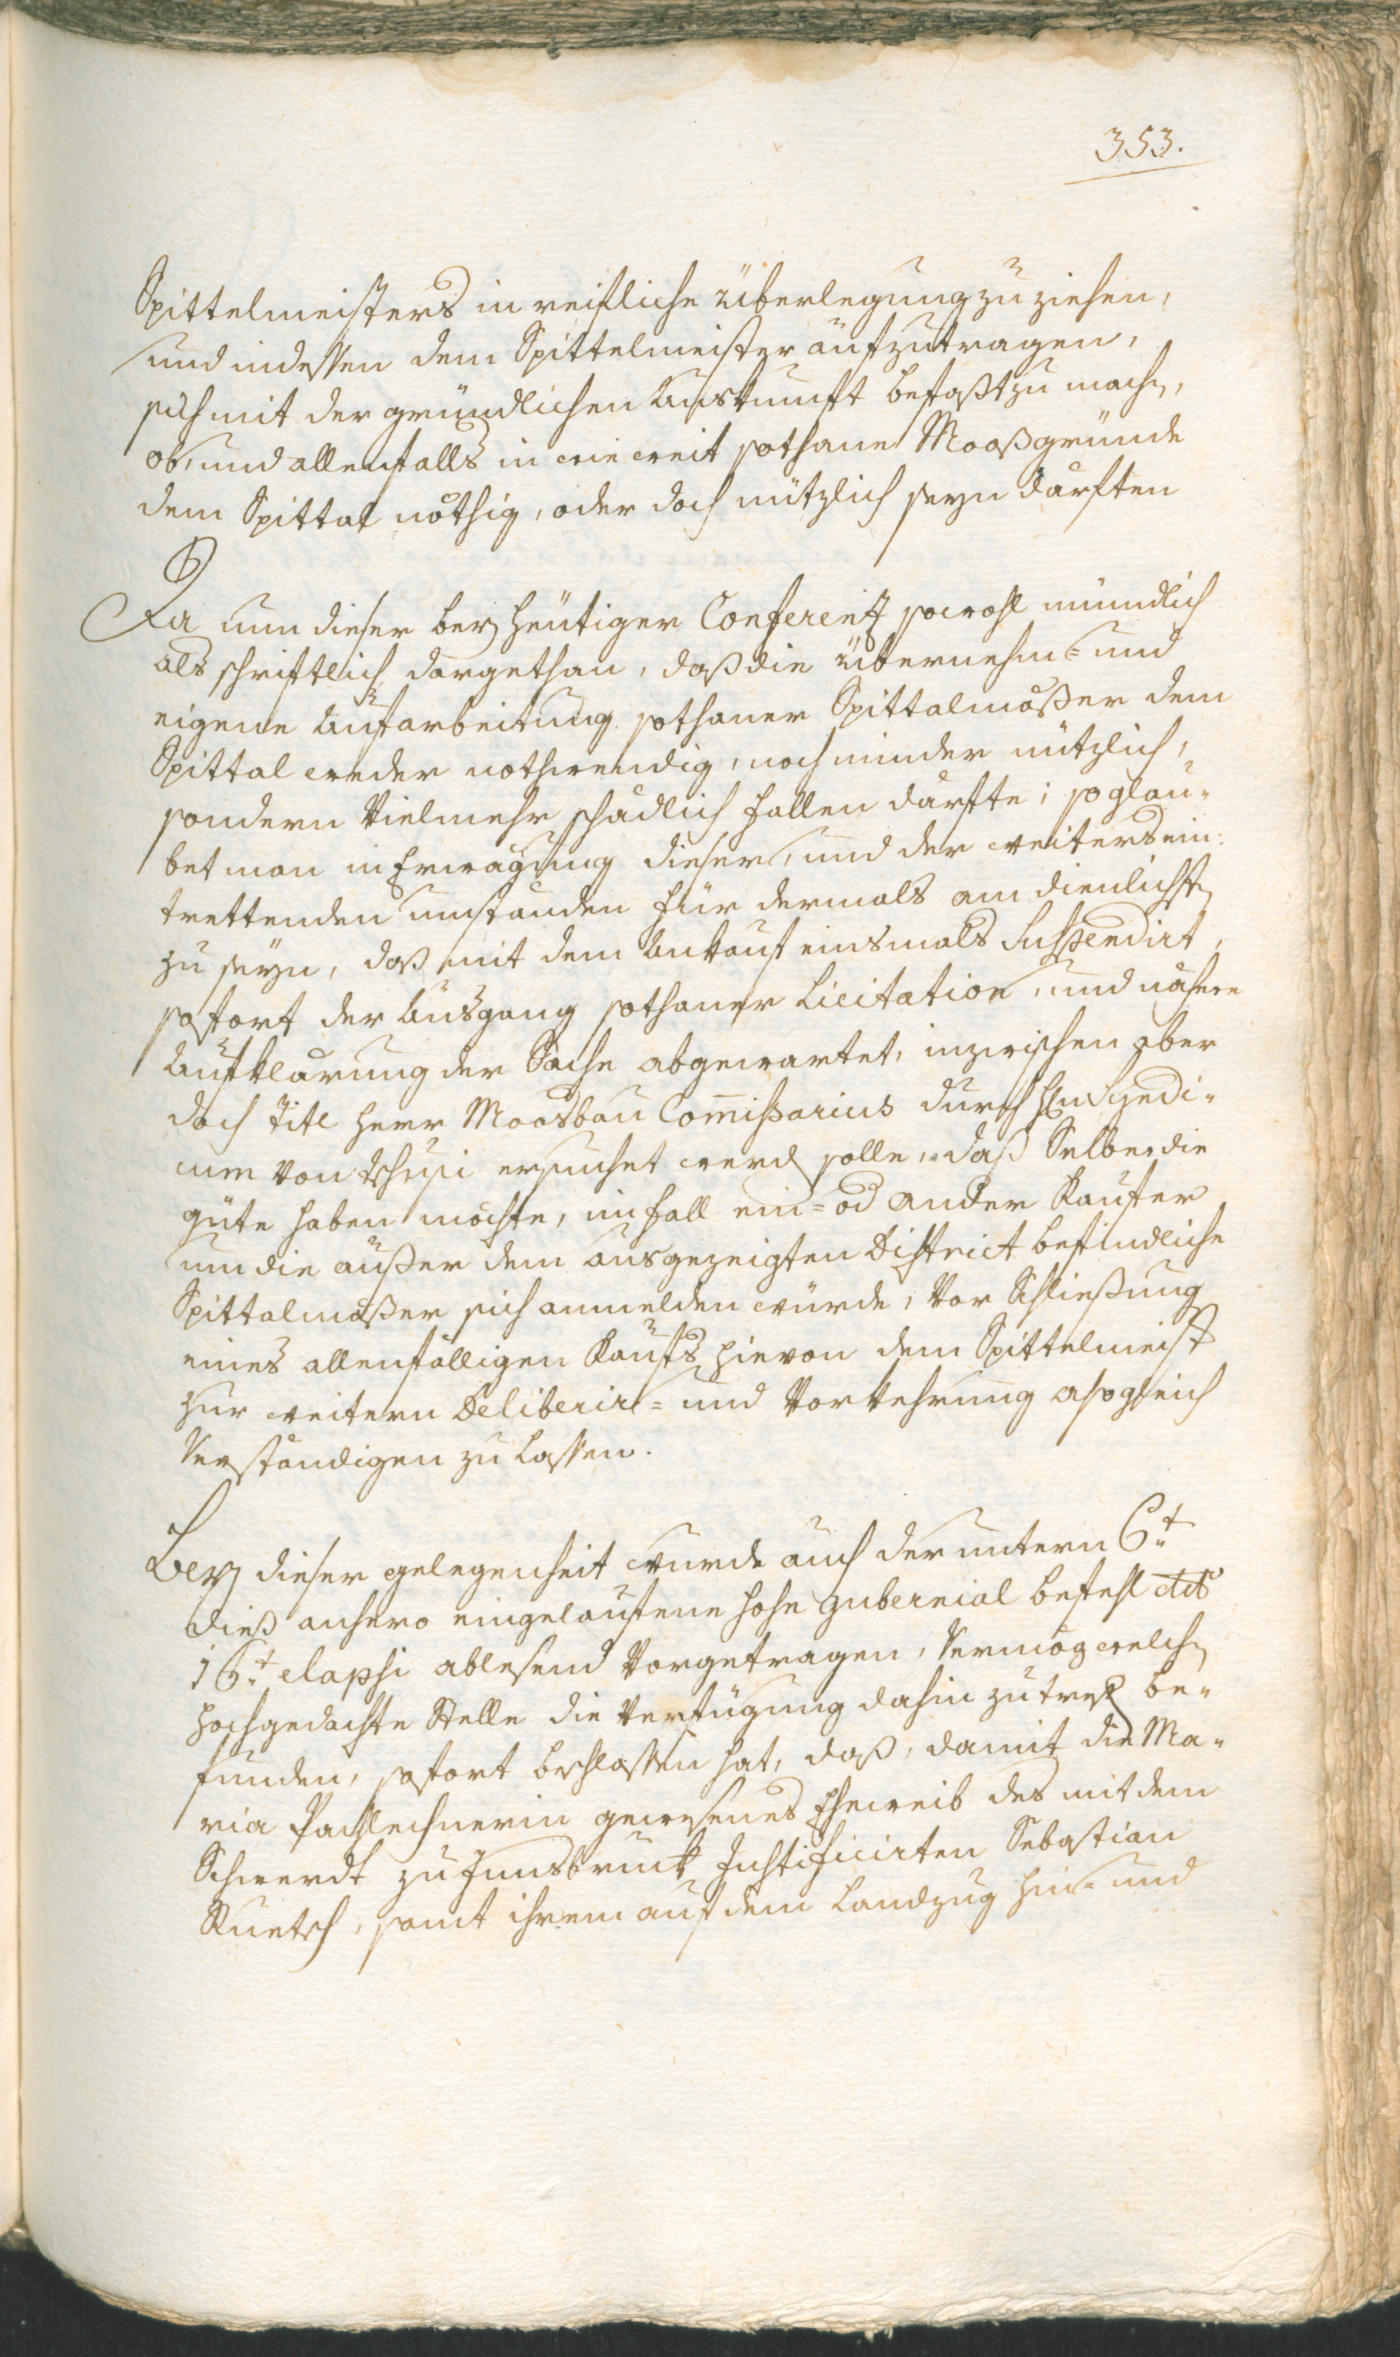 353.
Spittelmeisters in reifliche überlegung zu ziehen,
und indessen dem Spittelmeister aufzutragen,
sich mit der gründlichen Auskunft befasst zu mach,
ob, und allenfalls in wie weit sothane Mooßgründe
dem Spittal nöthig, oder doch nützlich seyn därften
Da nun dieser bey heutiger Conferenz sowohl mündlich
als schriftlich dargethan, daß die übernehm- und
eigene Aufarbeitung sothaner Spittalmößer dem
Spittal weder nothwendig, noch minder nützlich,
sondern Vielmehr schädlich fallen därfte; so glau-
bet man in Erwägung dieser, und der weiters ein-
trettenden umständen für dermals am dienlichst
zu seyn, daß mit dem Ankauf einsmals Suspendirt,
sofort der Ausgang sothaner Licitation, und nähere
Aufklärung der Sache abgewartet, inzwischen aber
doch Titl Herr Moosbau Commißarius durch H Syndi-
cum von Tschusi ersuchet werd solle, daß Selber die
güte haben möchte, im fall ein- od ander Kaufer
um die außer dem ausgezeigten District befindliche
Spittalmößer sich anmelden würde, Vor Schließung
eines allenfälligen Kaufs hievon dem Spittelmeist
zur weitern Deliberir- und Vorkehrung asogleich
Verständigen zu lassen.
Bey dieser gelegenheit wurde auch der untern 6t
dieß anhero eingelaufene hohe gubernial befehl dto
16t elapsi ablesend Vorgetragen, Vermög welch
hochgedachte Stelle die Verfügung dahin zu tref be-
funden, sofort beschlossen hat, daß, damit die Ma-
ria Pachlechnerin gewesenes Eheweib des mit dem
Schwerdt zu Innsbruck Justificirten Sebastian
Ruetsch, samt ihrem auf dem Landzug hin- und